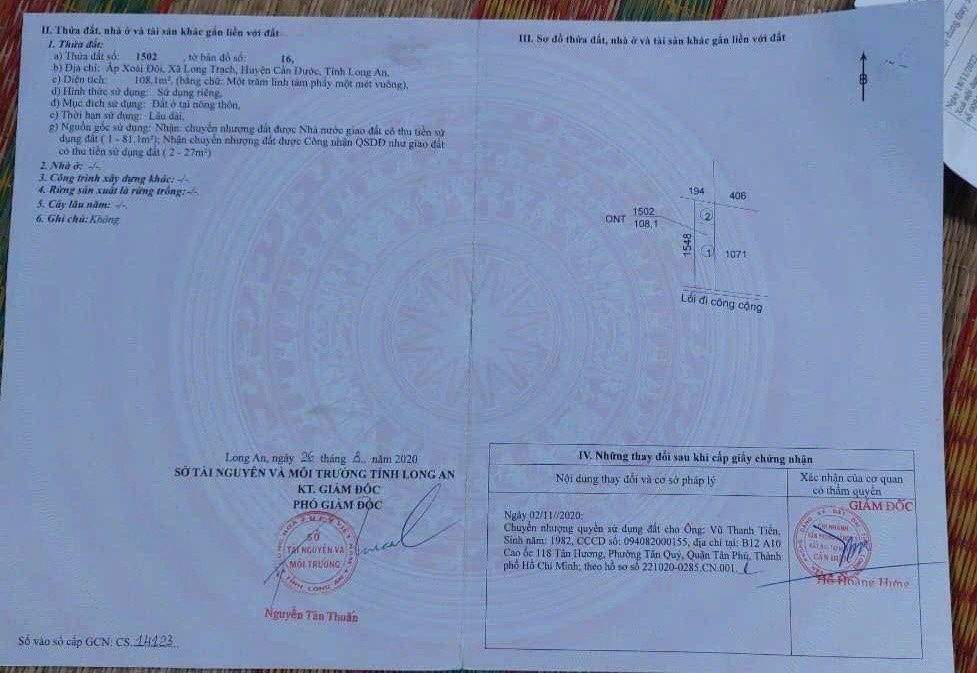 II. Thửa đất, nhà ở và tài sản khác gắn liền với đất
1. Thửa đất:
a) Thửa đất số: 1502 , tờ bản đồ số: 16,
b) Địa chỉ: Ấp Xoài Đôi, Xã Long Trạch, Huyện Cần Đước, Tỉnh Long An,
c) Diện tích: 108,1m², (bằng chữ: Một trăm linh tám phẩy một mét vuông),
d) Hình thức sử dụng: Sử dụng riêng,
đ) Mục đích sử dụng: Đất ở tại nông thôn,
e) Thời hạn sử dụng: Lâu dài,
g) Nguồn gốc sử dụng: Nhận chuyển nhượng đất được Nhà nước giao đất có thu tiền sử
dụng đất ( 1 - 81.1m²); Nhận chuyển nhượng đất được Công nhận QSDĐ như giao đất
có thu tiền sử dụng đất ( 2 - 27m²)
2. Nhà ở: -/-.
3. Công trình xây dựng khác: -/-.
4. Rừng sản xuất là rừng trồng: -/-.
5. Cây lâu năm: -/-.
6. Ghi chú: Không
Long An, ngày 26 tháng 8.. năm 2020
SỞ TÀI NGUYÊN VÀ MÔI TRƯỜNG TỈNH LONG AN
KT. GIÁM ĐỐC
PHÓ GIÁM ĐỐC
SỞ
TÀI NGUYÊN VÀ
MÔI TRƯỜNG
TỈNH LONG AN
Nguyễn Tân Thuấn
Số vào sổ cấp GCN: CS.14123..
III. Sơ đồ thửa đất, nhà ở và tài sản khác gắn liền với đất
B
194
406
ONT
1502
108,1
2
1548
1
1071
Lối đi công cộng
IV. Những thay đổi sau khi cấp giấy chứng nhận
Nội dung thay đổi và cơ sở pháp lý
Xác nhận của cơ quan
có thẩm quyền
Ngày 02/11//2020:
Chuyển nhượng quyền sử dụng đất cho Ông: Vũ Thanh Tiền,
Sinh năm: 1982, CCCD số: 094082000155, địa chỉ tại: B12 A10
Cao ốc 118 Tân Hương, Phường Tân Quý, Quận Tân Phú, Thành
phố Hồ Chí Minh; theo hồ sơ số 221020-0285.CN.001.
GIÁM ĐỐC
CHI NHÁNH
Hồ Hoàng Hưng